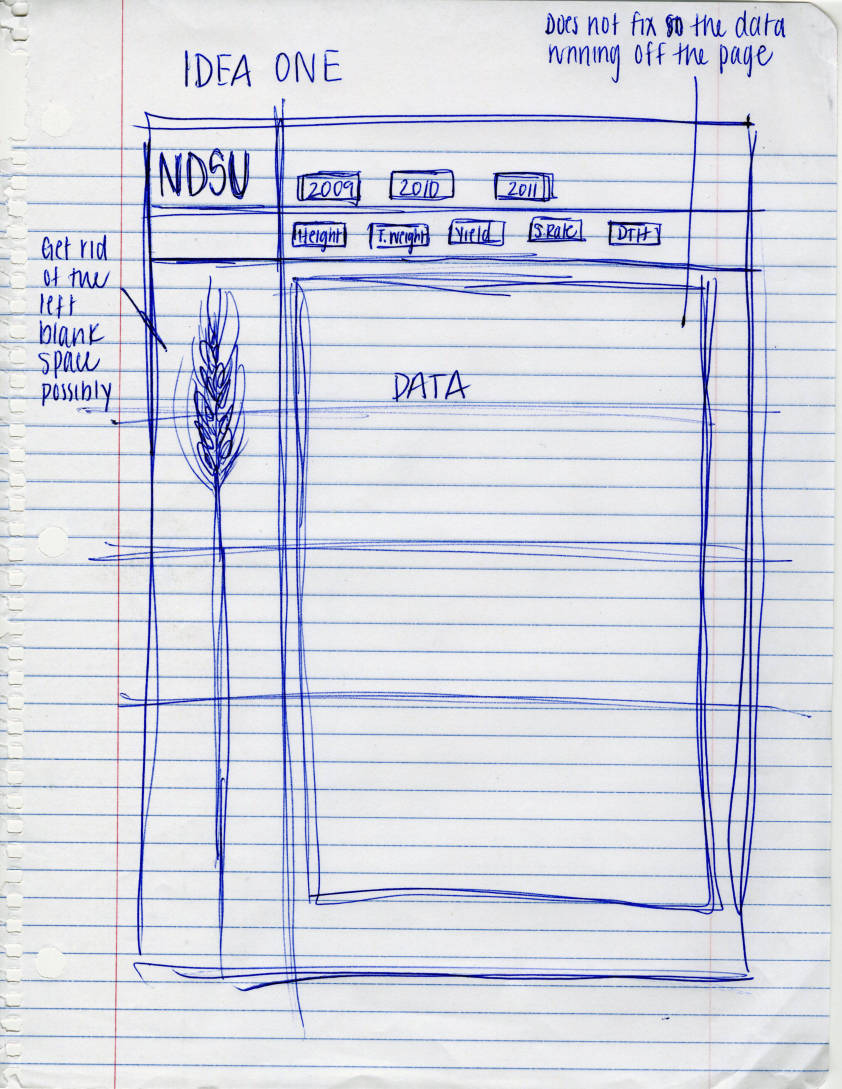 Does not fix so the data
running off the page
IDEA ONE
NDSU
2009 2010 2011
Height T.Weight Yield S.Rate DTH
Get rid
of the
left
blank
space
possibly
DATA